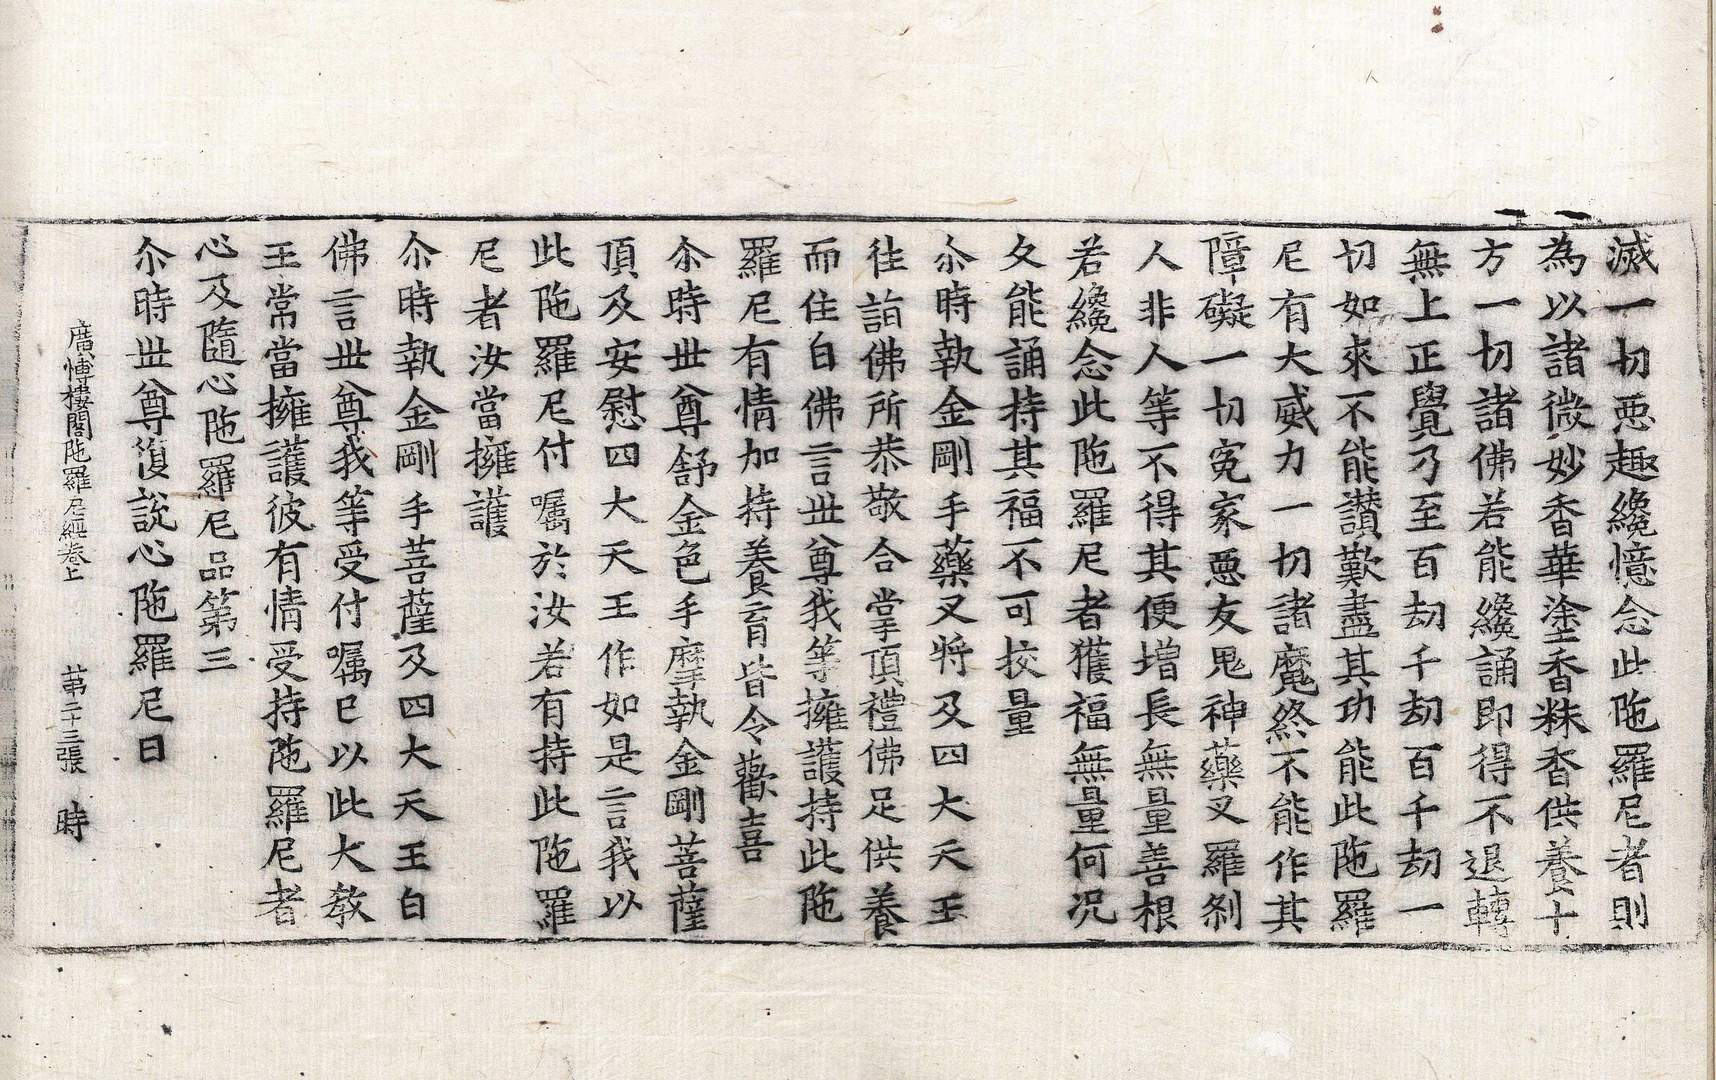 滅一切惡趣纔憶念此陁羅尼者則
為以諸微妙香華塗香粖香供養十
方一切諸佛若能纔誦即得不退轉
無上正覺乃至百劫千劫百千劫一
切如來不能讃歎盡其功能此陁羅
尼有大威力一切諸魔終不能作其
障礙一切寃家惡友鬼神藥叉羅剎
人非人等不得其便增長無量善根
若纔念此陁羅尼者獲福無量何況
久能誦持其福不可挍量
尒時執金剛手藥叉將及四大天王
往詣佛所恭敬合掌頂禮佛足供養
而住白佛言世尊我等擁護持此陁
羅尼有情加持養育皆令歡喜
尒時世尊舒金色手摩執金剛菩薩
頂及安慰四大天王作如是言我以
此陁羅尼付囑於汝若有持此陁羅
尼者汝當擁護
尒時執金剛手菩薩及四大天王白
佛言世尊我等受付囑已以此大教
王常當擁護彼有情受持陁羅尼者
心及隨心陁羅尼品第三
尒時世尊復說心陁羅尼曰
廣博樓閣陁羅尼經卷上 苐二十三張 時